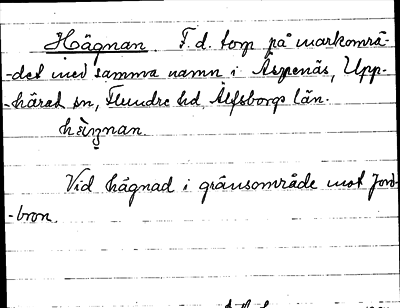 Hägnan. F.d. torp på markområ-
-det med samma namn i Äspenäs, Upp-
-härad sn, Flundre hd, Älfsborgs län.
hägnan.
Vid hägnad i gränsområde mot Jord-
-bron.